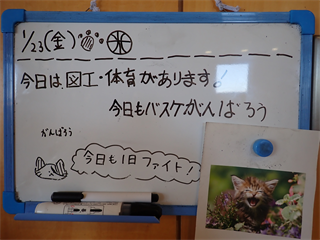 1/23(金)
今日は、図工・体育があります!
今日もバスケがんばろう
がんばろう
今日も1日ファイト!